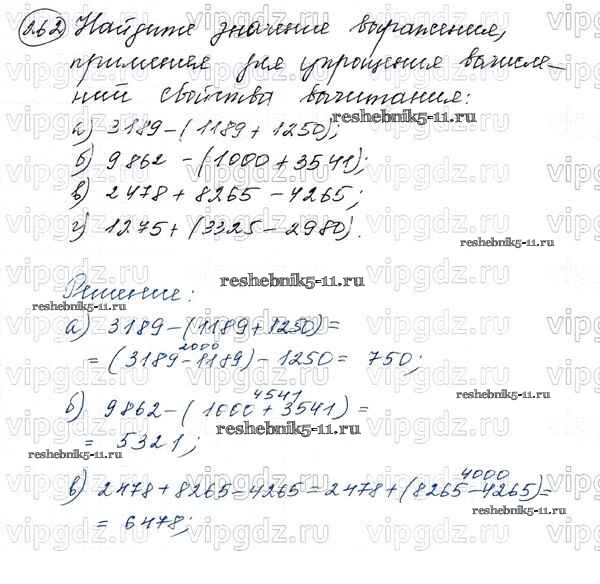 3.62 Найдите значение выражения,
применяя для упрощения вычисле-
ний свойства вычитания:
а) 3189-(1189+1250);
б) 9862 -(1000+3541);
в) 2478+8265-4265;
г) 1275+(3325-2980).
Решение:
а) 3189-(1189+1250)=
2000
=(3189-1189)-1250= 750;
4541
б) 9862-(1000+3541)=
= 5321;
4000
в) 2478+8265-4265=2478+(8265-4265)=
= 6478;
vipgdz.ru
reshebnik5-11.ru